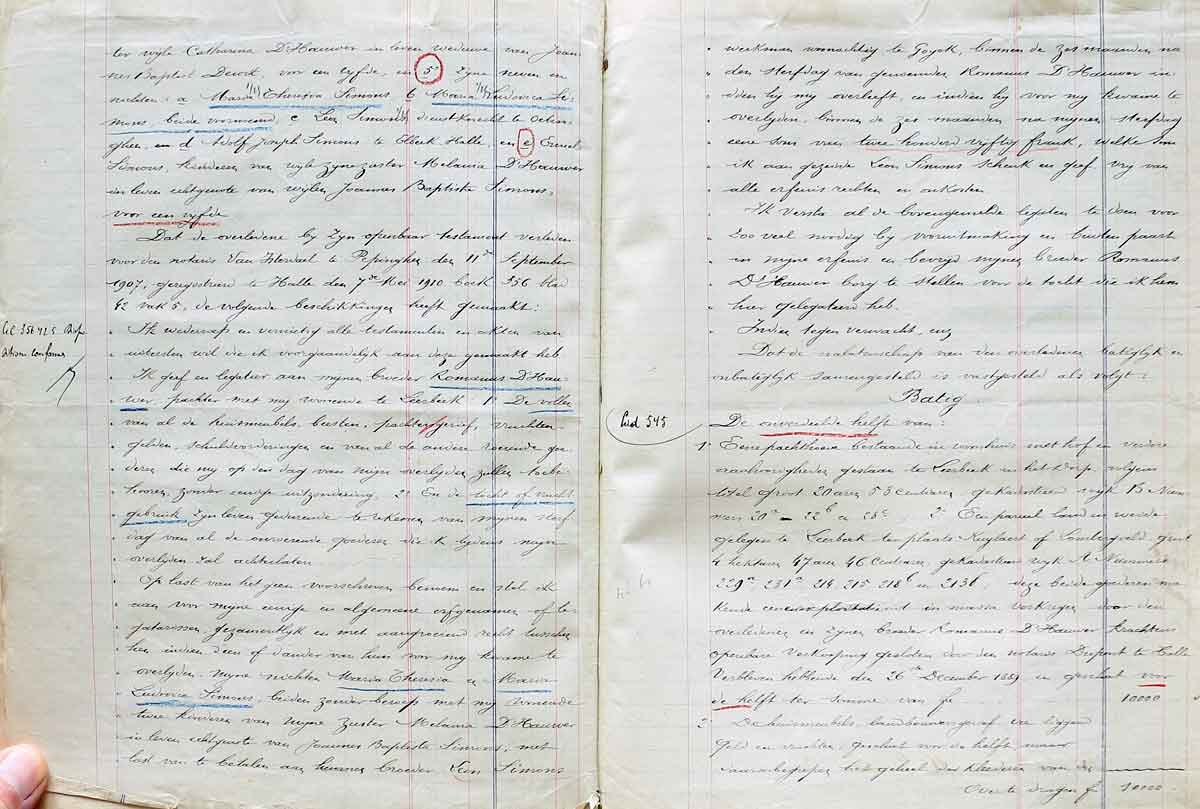 ter wyle Catharina D'Hauwer in leven weduwe van Joan-
nes Baptist Deuost, voor een vyfde, en 5° zyne neven en
nichten: a Maria Theresia Simons b Maria Ludovica Si-
mons, beide voornoemd, c Leon Simons dienstknecht te Oetin-
ghen, en d Adolf Joseph Simons te Elbeek Halle, en e Ernest
Simons, kinderen van wyle zyne zuster Melania D'Hauwer
in leven echtgenote van wylen Joannes Baptiste Simons,
voor een vyfde
Dat de overledene by zyn openbaar testament verleden
voor den notaris Van Isterdael te Pepinghen den 11den September
1907, geregistreerd te Halle den 7den Mei 1910 boek 356 blad
42 vak 5, de volgende beschikkingen heeft gemaakt:
" Ik wederroep en vernietig alle testamenten en akten van
" uitersten wil die ik voorgaandelyk aan deze gemaakt heb
" Ik geef en legateer aan mynen broeder Romanus D'Hau-
wer, pachter met my wonende te Leerbeek 1° De vollen
" van al de huismeubels, beesten, pachtersgerief, vruchten
" gelden schuldvorderingen en van al de andere roerende goe-
" deren die my op den dag van myne overlyden zullen toebe-
" hooren, zonder eenige uitzondering, 2° En de tocht of vrucht
" gebruik zyn leven gedurende te rekenen van mynen sterf
" dag van al de onroerende goederen die ik tydens myn
" overlyden zal achterlaten
" Op last van het geen voorschreven benoem en stel ik
" aan voor myne eenige en algemeene erfgenamen of le-
" gatarissen, gezamentlyk en met aangroeiend recht tusschen
" hen indien deen of dander van hen voor my kwame te
" overlyden, myne nichten Maria Theresia en Maria
" Ludovica Simons beiden zonder beroep met my wonende
" twee kinderen van myne zuster Melania D'Hauwer
" in leven echtgenote van Joannes Baptiste Simons, met
" last van te betalen aan hunnen broeder Leon Simons
356 42 5
" werkman woonachtig te Goyck, binnen de zes maanden na
" den sterfdag van genoemden Romanus D'Hauwer in
" dien hy my overleeft, en indien hy voor my kwame te
" overlyden, binnen de zes maanden na mynen sterfdag
" eene som van twee honderd vyftig frank, welke som
" ik aan gezeide Leon Simons schenk en geef vry van
" alle erfenis rechten en onkosten
" Ik versta al de bovengemelde legaten te doen voor
" zoo veel noodig by vooruitmaking en buiten paart
" in myne erfenis en bevryd mynen broeder Romanus
" D'Hauwer borg te stellen voor de tocht die ik hem
" hier gelegateerd heb.
" Indien tegen verwacht, enz
Dat de nalatenschap van den overledenen batiglyk en
onbatiglyk samengesteld is vastgesteld als volgt:
Batig
545
De onverdeelde helft van:
1° Eene pachthoeve bestaande in woonhuis met hof en verdere
aanhoorigheden gestaan te Leerbeek in het dorp, volgens
titel groot 20 aren 53 centiaren gekadastreerd wyk B Num-
mers 20a - 22b en 23c, 2° Een parceel land en weide
gelegen te Leerbeek ter plaats Kuylaert of Lombergveld, groot
4 hektaren 47 aren 46 centiaren, gekadastreerd wyk A Nummers
229a 231a 214 215 216b en 213b, deze beide goederen ma
kende eene exploitatie uit in massa verkregen door den
overledenen en zynen broeder Romanus D'Hauwer krachtens
openbare verkooping gehouden door den notaris Dupont te Halle
Verbleven hebbende den 26den December 1889 en geschat voor
de helft ter somme van fr 10000
2° De huismeubels, landbouwersgerief vee liggen
geld en vruchten, geschat voor de helft maar
daarin begrepen het geheel der kleederen van den
Over te dragen f 10000